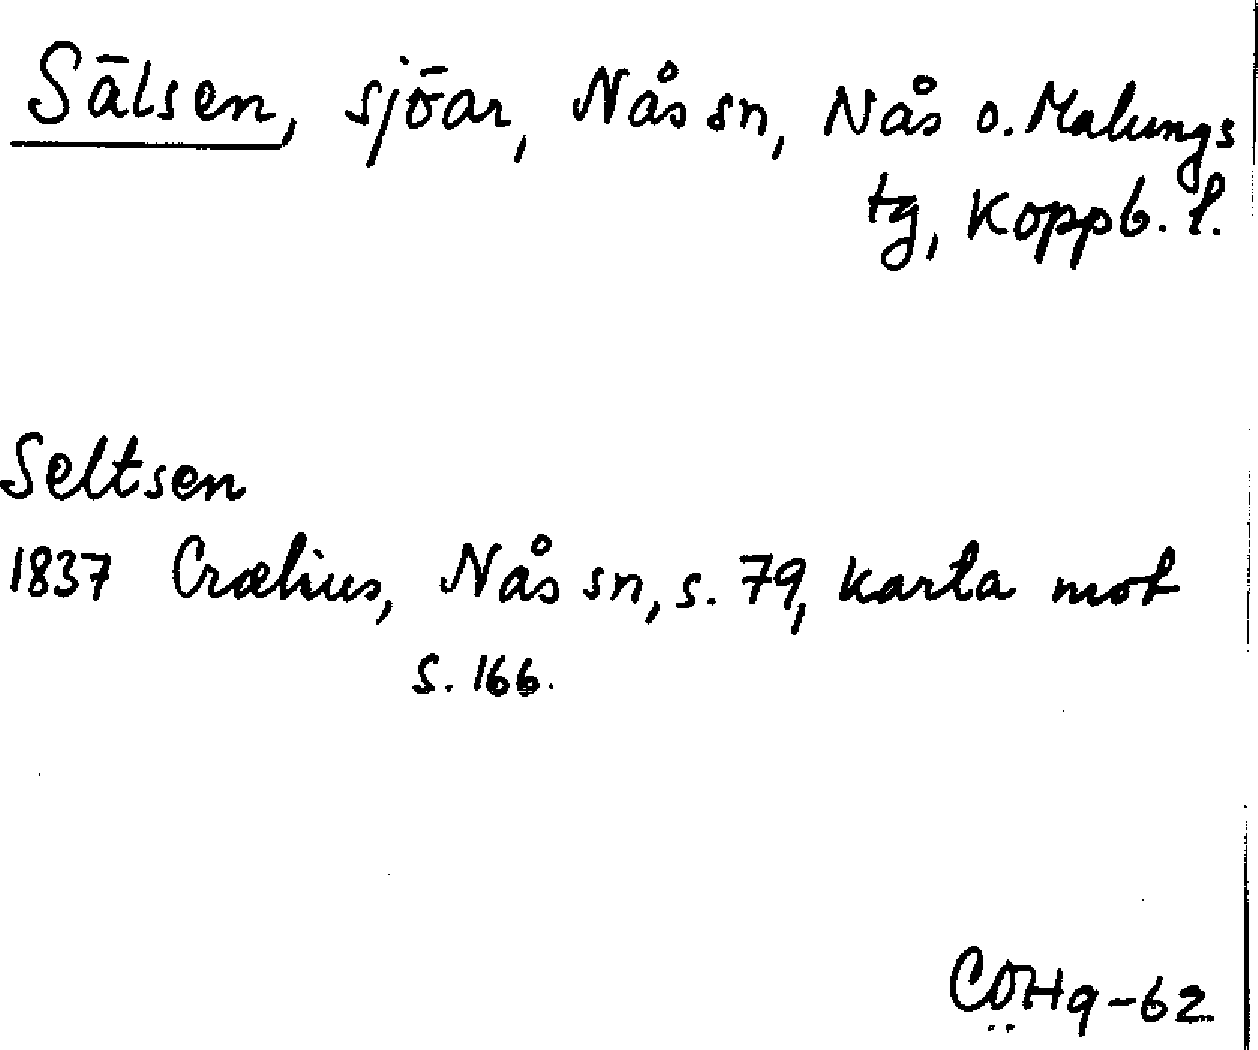 Sälsen, sjöar, Nås sn, Nås o. Malungs
tg, Koppb. l.
Seltsen
1837 Crælius, Nås sn, s. 79, karta mot
s. 166.